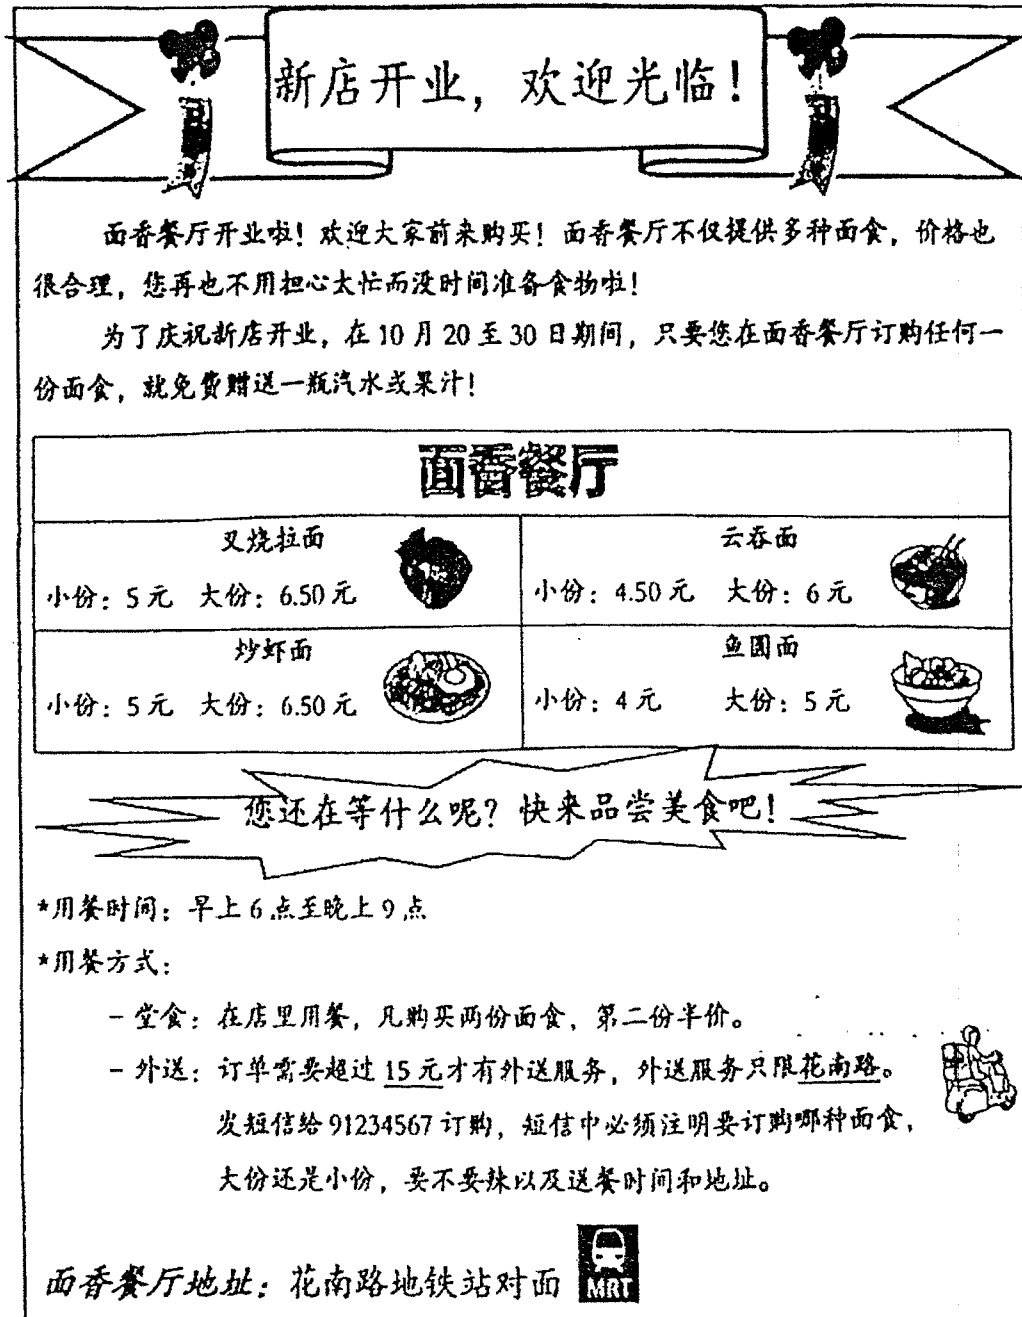 新店开业，欢迎光临！
面香餐厅开业啦！欢迎大家前来购买！面香餐厅不仅提供多种面食，价格也
很合理，您再也不用担心太忙而没时间准备食物啦！
为了庆祝新店开业，在 10 月 20 至 30 日期间，只要您在面香餐厅订购任何一
份面食，就免费赠送一瓶汽水或果汁！
面香餐厅
叉烧拉面
小份：5 元 大份：6.50 元
云吞面
小份：4.50 元 大份：6 元
炒虾面
小份：5 元 大份：6.50 元
鱼圆面
小份：4 元 大份：5 元
您还在等什么呢？快来品尝美食吧！
*用餐时间：早上 6 点至晚上 9 点
*用餐方式：
- 堂食：在店里用餐，凡购买两份面食，第二份半价。
- 外送：订单需要超过 15 元才有外送服务，外送服务只限花南路。
发短信给 91234567 订购，短信中必须注明要订购哪种面食，
大份还是小份，要不要辣以及送餐时间和地址。
面香餐厅地址：花南路地铁站对面
MRT